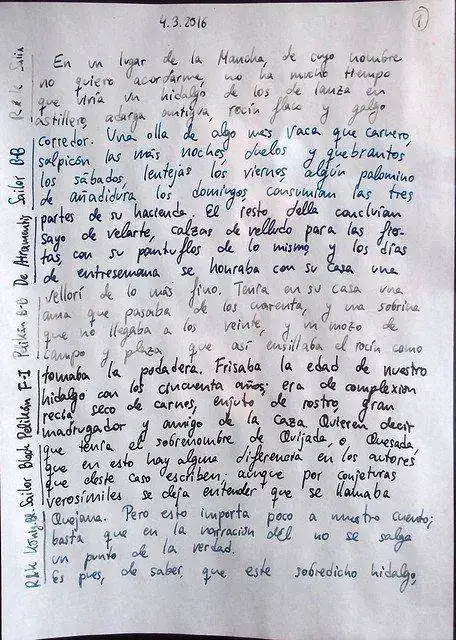 4.3.2016
1
En un lugar de la Mancha, de cuyo nombre
no quiero acordarme, no ha mucho tiempo
que vivía un hidalgo de los de lanza en
astillero, adarga antigua, rocín flaco y galgo
corredor. Una olla de algo más vaca que carnero,
salpicón las más noches, duelos y quebrantos
los sábados, lentejas los viernes, algún palomino
de añadidura los domingos, consumían las tres
partes de su hacienda. El resto della concluían
sayo de velarte, calzas de velludo para las fies-
tas, con su pantuflos de lo mismo, y los días
de entresemana se honraba con su casa una
vellorí de lo más fino. Tenía en su casa una
ama que pasaba de los cuarenta, y una sobrina
que no llegaba a los veinte, y un mozo de
campo y plaza, que así ensillaba el rocín como
tomaba la podadera. Frisaba la edad de nuestro
hidalgo con los cincuenta años; era de complexión
recia, seco de carnes, enjuto de rostro, gran
madrugador y amigo de la caza. Quieren decir
que tenía el sobrenombre de Quijada, o Quesada,
que en esto hay alguna diferencia en los autores
que deste caso escriben; aunque por conjeturas
verosímiles se deja entender que se llamaba
Quejana. Pero esto importa poco a nuestro cuento;
basta que en la narración dél no se salga
un punto de la verdad.
Es pues, de saber, que este sobredicho hidalgo,
R&K Salix
Sailor B-B
De Atramentis
Pelikan B-B
Pelikan F-I
Sailor Black
R&K